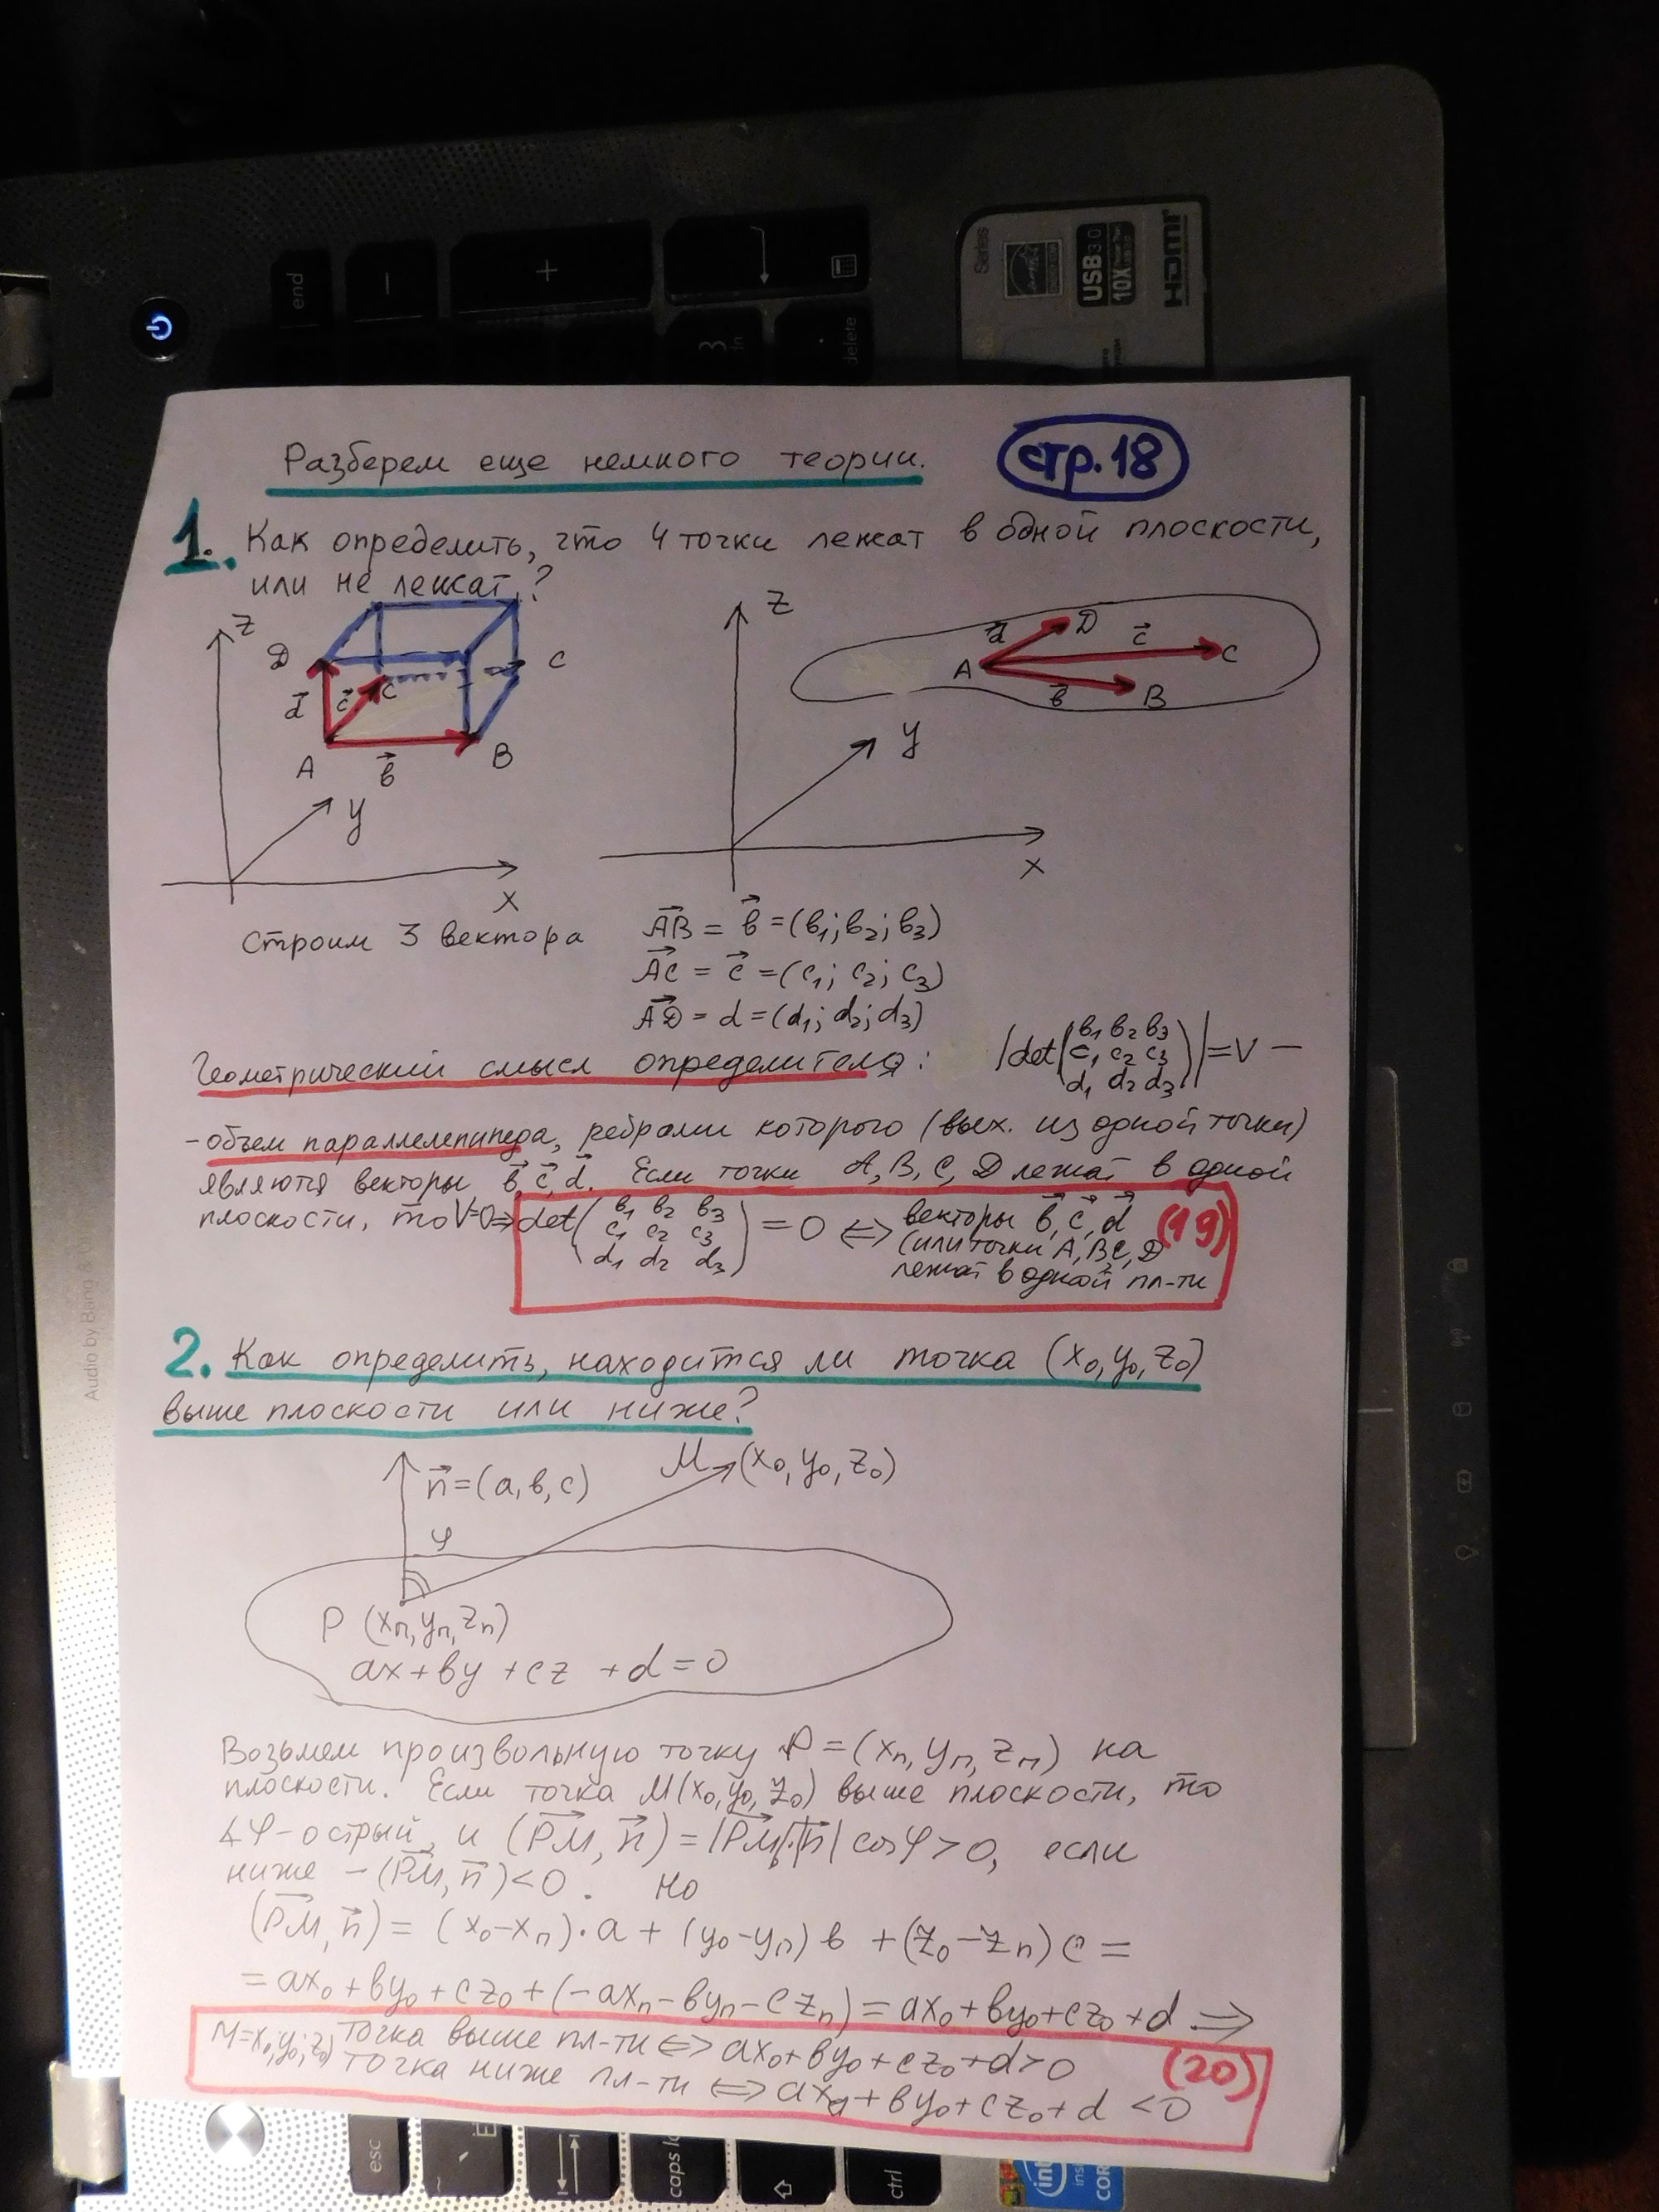 end
−
+
3
dn
.
delete
Series
USB 3.0
10X
HDMI
Разберем еще немного теории.
стр.18
1. Как определить, что 4 точки лежат в одной плоскости,
или не лежат?
z
D
C
d⃗
c⃗
C
A
b⃗
B
y
x
z
d⃗
D
c⃗
C
A
b⃗
B
y
x
Строим 3 вектора
AB⃗ = b⃗ = (b₁; b₂; b₃)
AC⃗ = c⃗ = (c₁; c₂; c₃)
AD⃗ = d = (d₁; d₂; d₃)
Геометрический смысл определителя: |det(b₁ b₂ b₃
c₁ c₂ c₃
d₁ d₂ d₃)| = V −
- объем параллелепипеда, ребрами которого (вых. из одной точки)
являются векторы b⃗, c⃗, d⃗. Если точки A, B, C, D лежат в одной
плоскости, то V=0 ⇒ det(b₁ b₂ b₃
c₁ c₂ c₃
d₁ d₂ d₃) = 0 ⇔ векторы b⃗, c⃗, d⃗ (19)
(или точки A, B, C, D
лежат в одной пл-ти
2. Как определить, находится ли точка (x₀, y₀, z₀)
выше плоскости или ниже?
n⃗ = (a, b, c)
M (x₀, y₀, z₀)
φ
P (xₙ, yₙ, zₙ)
ax + by + cz + d = 0
Возьмем произвольную точку P = (xₙ, yₙ, zₙ) на
плоскости. Если точка M(x₀, y₀, z₀) выше плоскости, то
∡φ - острый, и (PM⃗, n⃗) = |PM⃗|·|n⃗| cosφ > 0, если
ниже − (PM⃗, n⃗) < 0. Но
(PM⃗, n⃗) = (x₀−xₙ)·a + (y₀−yₙ) b + (z₀−zₙ) c =
= ax₀ + by₀ + cz₀ + (−axₙ − byₙ − czₙ) = ax₀ + by₀ + cz₀ + d ⇒
M=x₀;y₀;z₀) точка выше пл-ти ⇔ ax₀ + by₀ + cz₀ + d > 0 (20)
точка ниже пл-ти ⇔ ax₀ + by₀ + cz₀ + d < 0
esc
caps lo
ctrl
COR